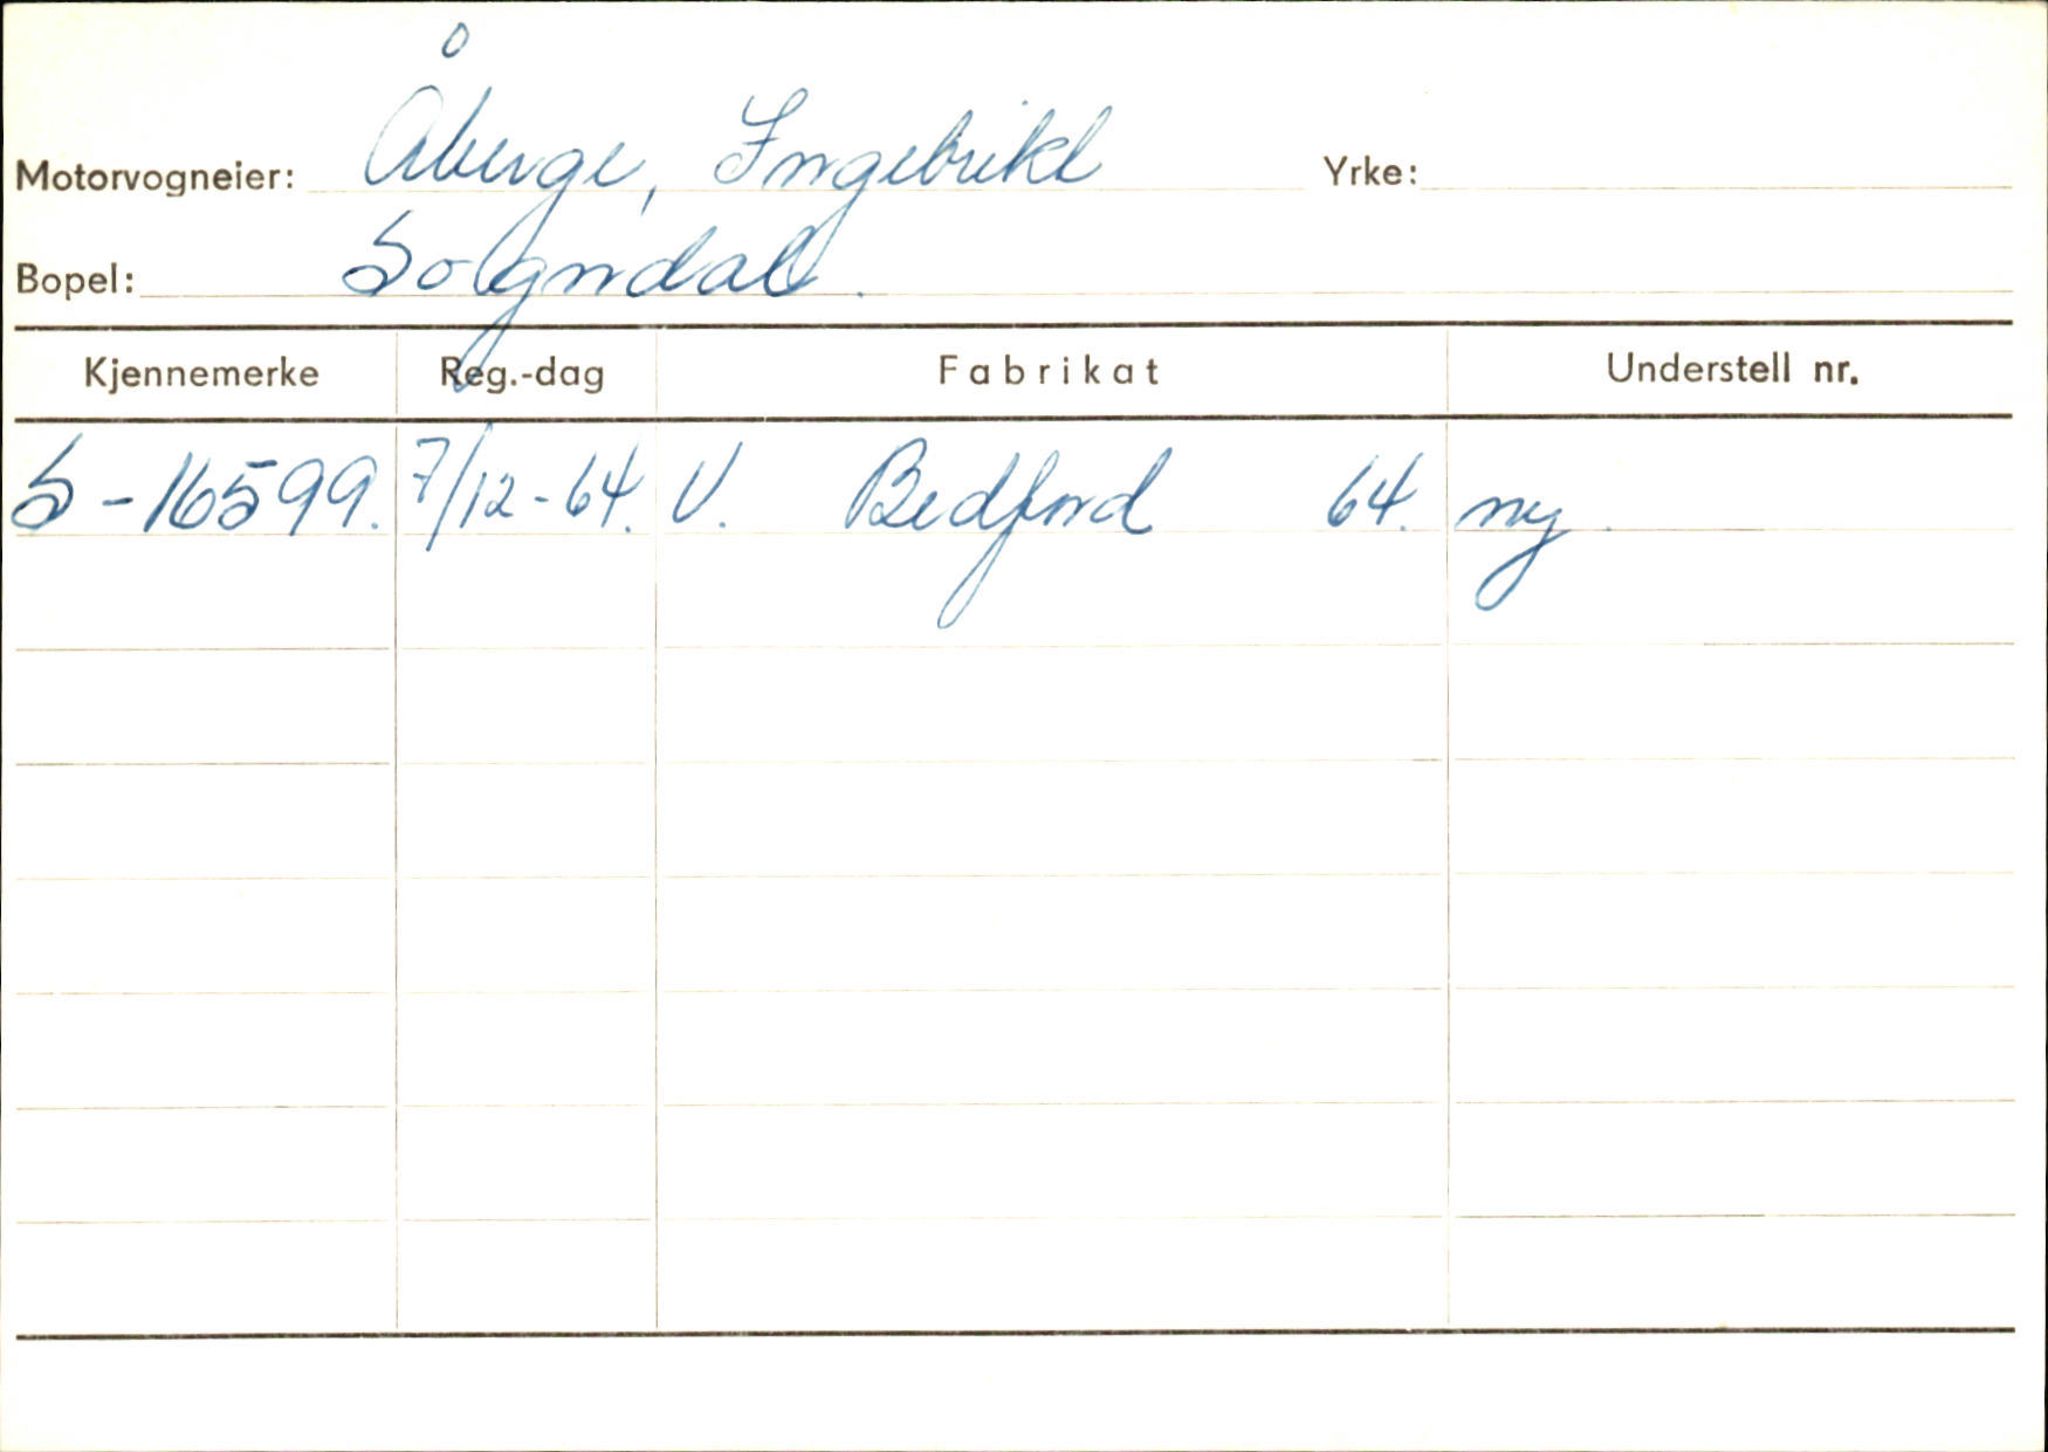 Motorvogneier: Åberge, Ingebrikt Yrke:
Bopel: Sogndal.
Kjennemerke Reg.-dag Fabrikat Understell nr.
S-16599. 7/12-64. V. Bedford 64. ny.